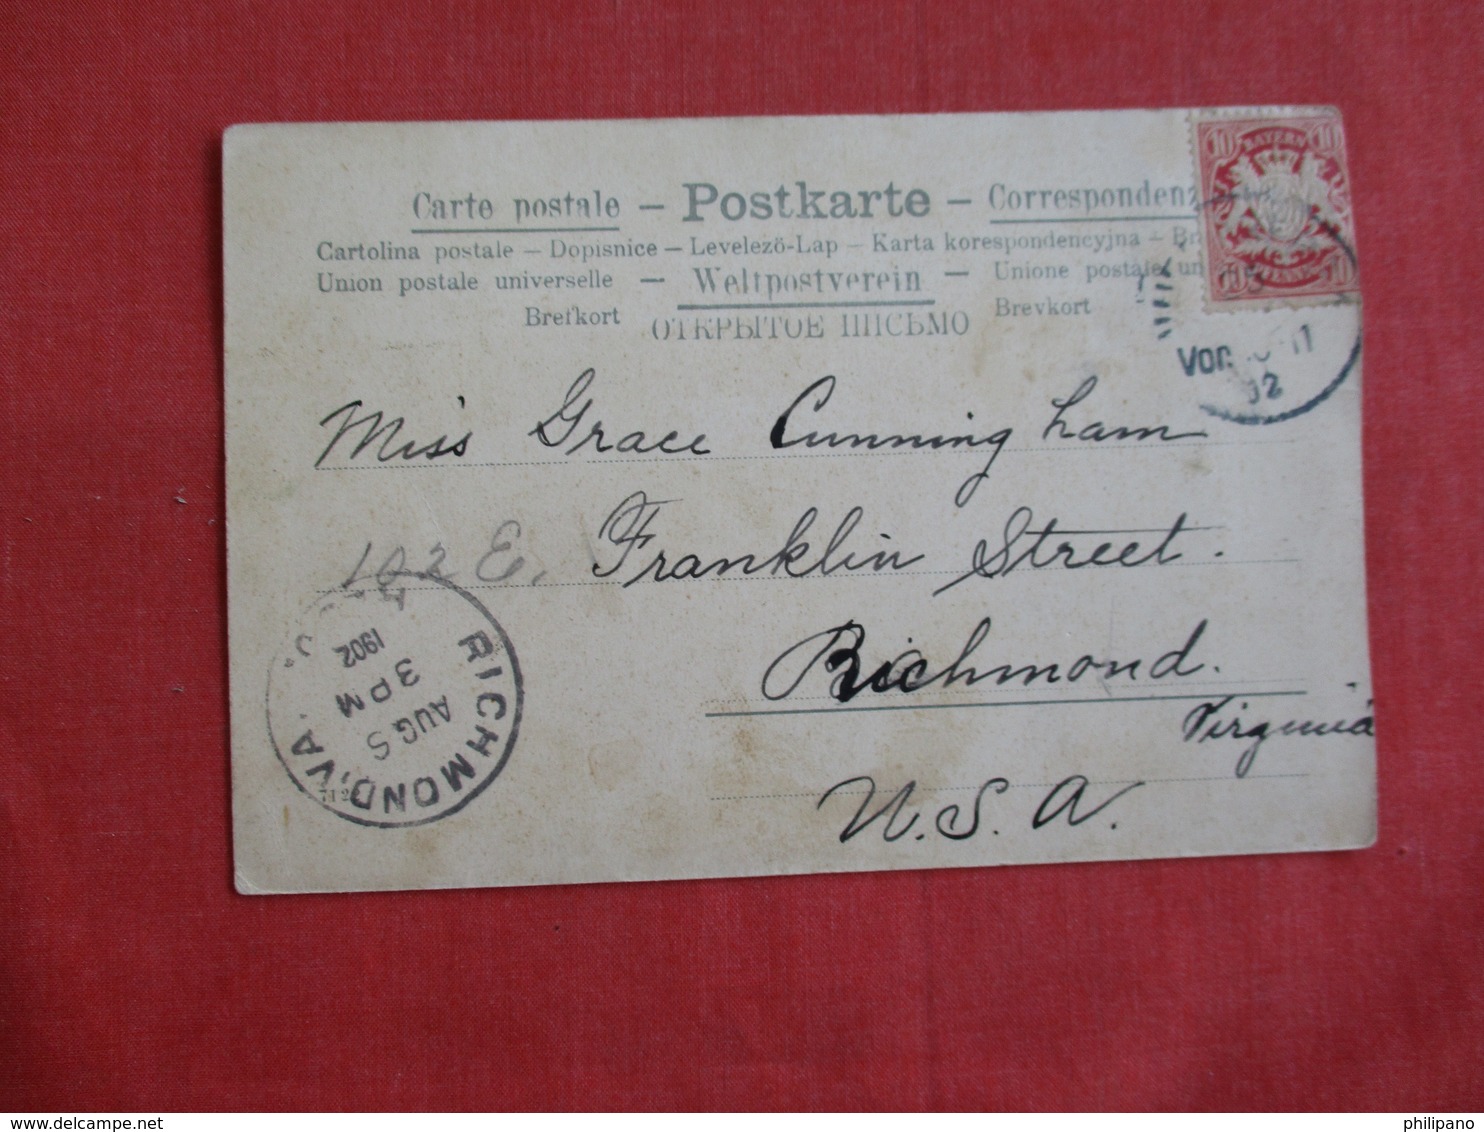 Carte postale – Postkarte – Correspondenz
Cartolina postale – Dopisnice – Levelező-Lap – Karta korespondencyjna –
Union postale universelle – Weltpostverein – Unione postale
Brefkort ОТКРЫТОЕ ПИСЬМО Brevkort
10 BAYERN 10
Vor
02
Miss Grace Cunningham
102 E. Franklin Street.
Richmond.
Virginia
U.S.A.
RICHMOND, VA.
AUG 5
3 PM
1902
philipano